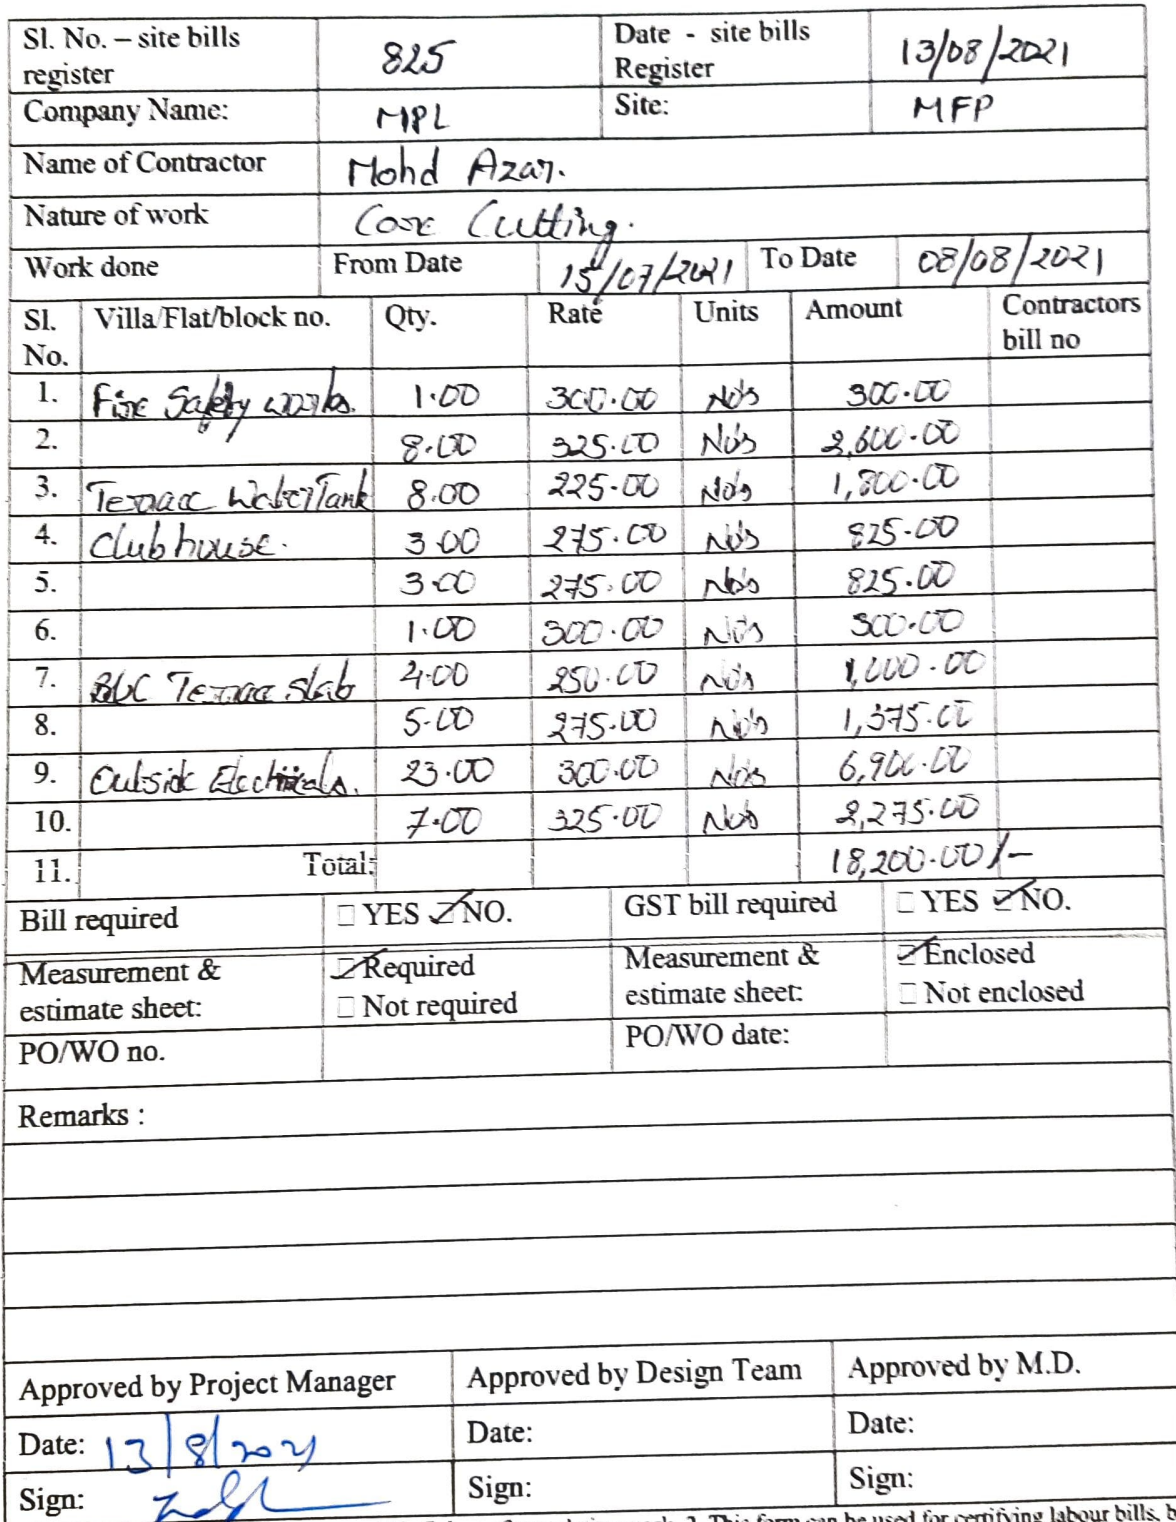 Sl. No. – site bills register 825 Date - site bills Register 13/08/2021
Company Name: MPL Site: MFP
Name of Contractor Mohd Azar.
Nature of work Core Cutting.
Work done From Date 15/07/2021 To Date 08/08/2021
Sl. No. Villa/Flat/block no. Qty. Rate Units Amount Contractors bill no
1. Fire Safety works. 1.00 300.00 No's 300.00
2. 8.00 325.00 No's 2,600.00
3. Terrace Water Tank 8.00 225.00 No's 1,800.00
4. Clubhouse. 3.00 275.00 No's 825.00
5. 3.00 275.00 No's 825.00
6. 1.00 300.00 No's 300.00
7. Terrace Slab 4.00 250.00 No's 1,000.00
8. 5.00 275.00 No's 1,375.00
9. Outside Electricals. 23.00 300.00 No's 6,900.00
10. 7.00 325.00 No's 2,275.00
11. Total: 18,200.00/-
Bill required □ YES ☑ NO. GST bill required □ YES ☑ NO.
Measurement & estimate sheet: ☑ Required □ Not required Measurement & estimate sheet: ☑ Enclosed □ Not enclosed
PO/WO no. PO/WO date:
Remarks :
Approved by Project Manager Approved by Design Team Approved by M.D.
Date: 13/8/2021 Date: Date:
Sign: Sign: Sign:
2. This form can be used for certifying labour bills,